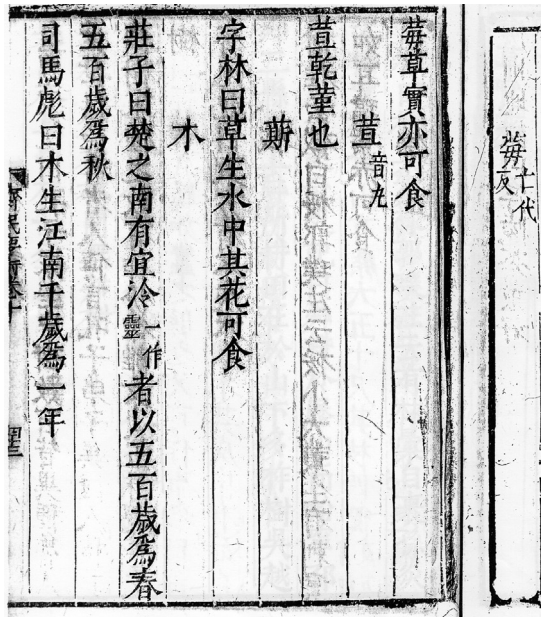 苺亡代反
苺草實亦可食
荁音九
荁乾菫也
䔮
字林曰草生水中其花可食
木
莊子曰楚之南有宜泠一作靈者以五百歲爲春
五百歲爲秋
司馬彪曰木生江南千歲爲一年
齊民要術卷十